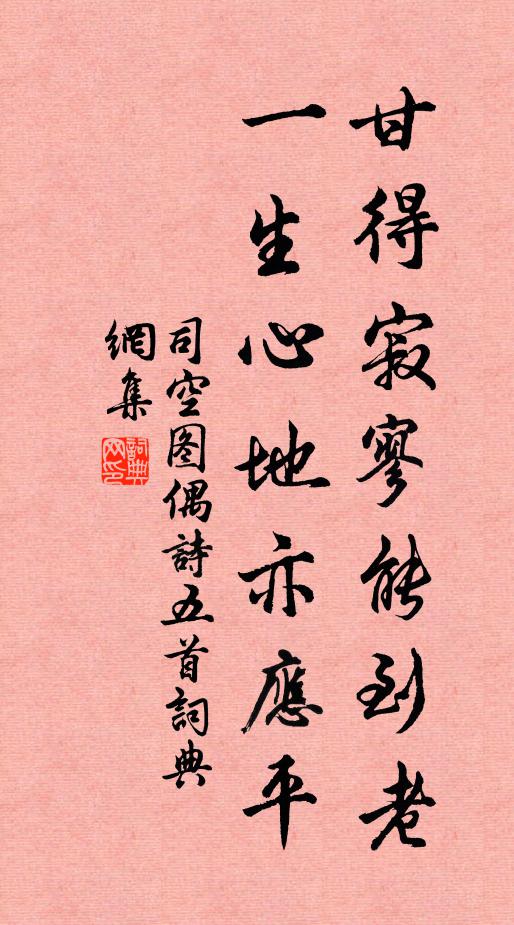 甘得寂寥能到老
一生心地亦應平
司空图偶詩五首詞典
網集
詞典
网印